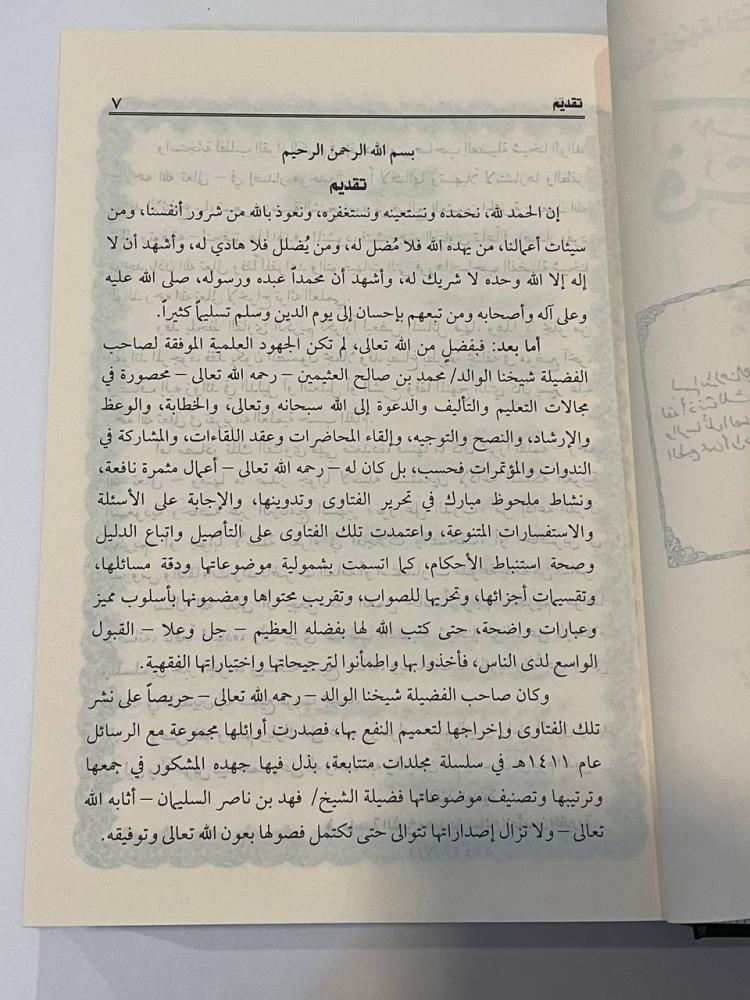 تقديم ٧
بسم الله الرحمن الرحيم
تقديم
إن الحمد لله، نحمده ونستعينه ونستغفره، ونعوذ بالله من شرور أنفسنا، ومن
سيئات أعمالنا، من يهده الله فلا مُضل له، ومن يُضلل فلا هادي له، وأشهد أن لا
إله إلا الله وحده لا شريك له، وأشهد أن محمداً عبده ورسوله، صلى الله عليه
وعلى آله وأصحابه ومن تبعهم بإحسان إلى يوم الدين وسلم تسليماً كثيراً.
أما بعد: فبفضلٍ من الله تعالى، لم تكن الجهود العلمية الموفقة لصاحب
الفضيلة شيخنا الوالد/ محمد بن صالح العثيمين – رحمه الله تعالى – محصورة في
مجالات التعليم والتأليف والدعوة إلى الله سبحانه وتعالى، والخطابة، والوعظ
والإرشاد، والنصح والتوجيه، وإلقاء المحاضرات وعقد اللقاءات، والمشاركة في
الندوات والمؤتمرات فحسب، بل كان له – رحمه الله تعالى – أعمال مثمرة نافعة،
ونشاط ملحوظ مبارك في تحرير الفتاوى وتدوينها، والإجابة على الأسئلة
والاستفسارات المتنوعة، واعتمدت تلك الفتاوى على التأصيل واتباع الدليل
وصحة استنباط الأحكام، كما اتسمت بشمولية موضوعاتها ودقة مسائلها،
وتقسيمات أجزائها، وتحريها للصواب، وتقريب محتواها ومضمونها بأسلوب مميز
وعبارات واضحة، حتى كتب الله لها بفضله العظيم – جل وعلا – القبول
الواسع لدى الناس، فأخذوا بها واطمأنوا لترجيحاتها واختياراتها الفقهية.
وكان صاحب الفضيلة شيخنا الوالد – رحمه الله تعالى – حريصاً على نشر
تلك الفتاوى وإخراجها لتعميم النفع بها، فصدرت أوائلها مجموعة مع الرسائل
عام ١٤١١هـ في سلسلة مجلدات متتابعة، بذل فيها جهده المشكور في جمعها
وترتيبها وتصنيف موضوعاتها فضيلة الشيخ/ فهد بن ناصر السليمان – أثابه الله
تعالى – ولا تزال إصداراتها تتوالى حتى تكتمل فصولها بعون الله تعالى وتوفيقه.